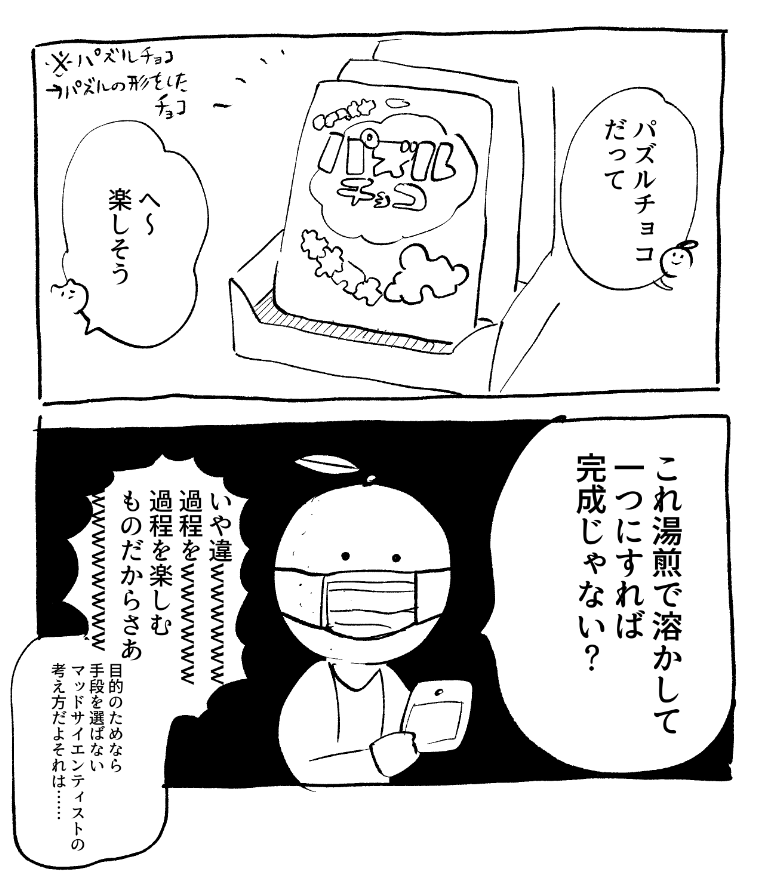 ※パズルチョコ
→パズルの形をした
チョコ
パズル
チョコ
パズルチョコ
だって
へ〜
楽しそう
これ湯煎で溶かして
一つにすれば
完成じゃない?
いや違wwwwwww
過程をwwwwwww
過程を楽しむ
ものだからさあ
wwwwwwwww
目的のためなら
手段を選ばない
マッドサイエンティストの
考え方だよそれは……